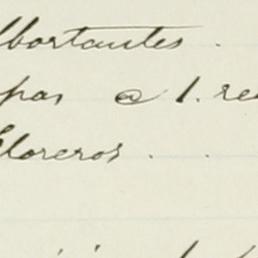 lbortantes .
pas @ 1. rea
Floreros . .